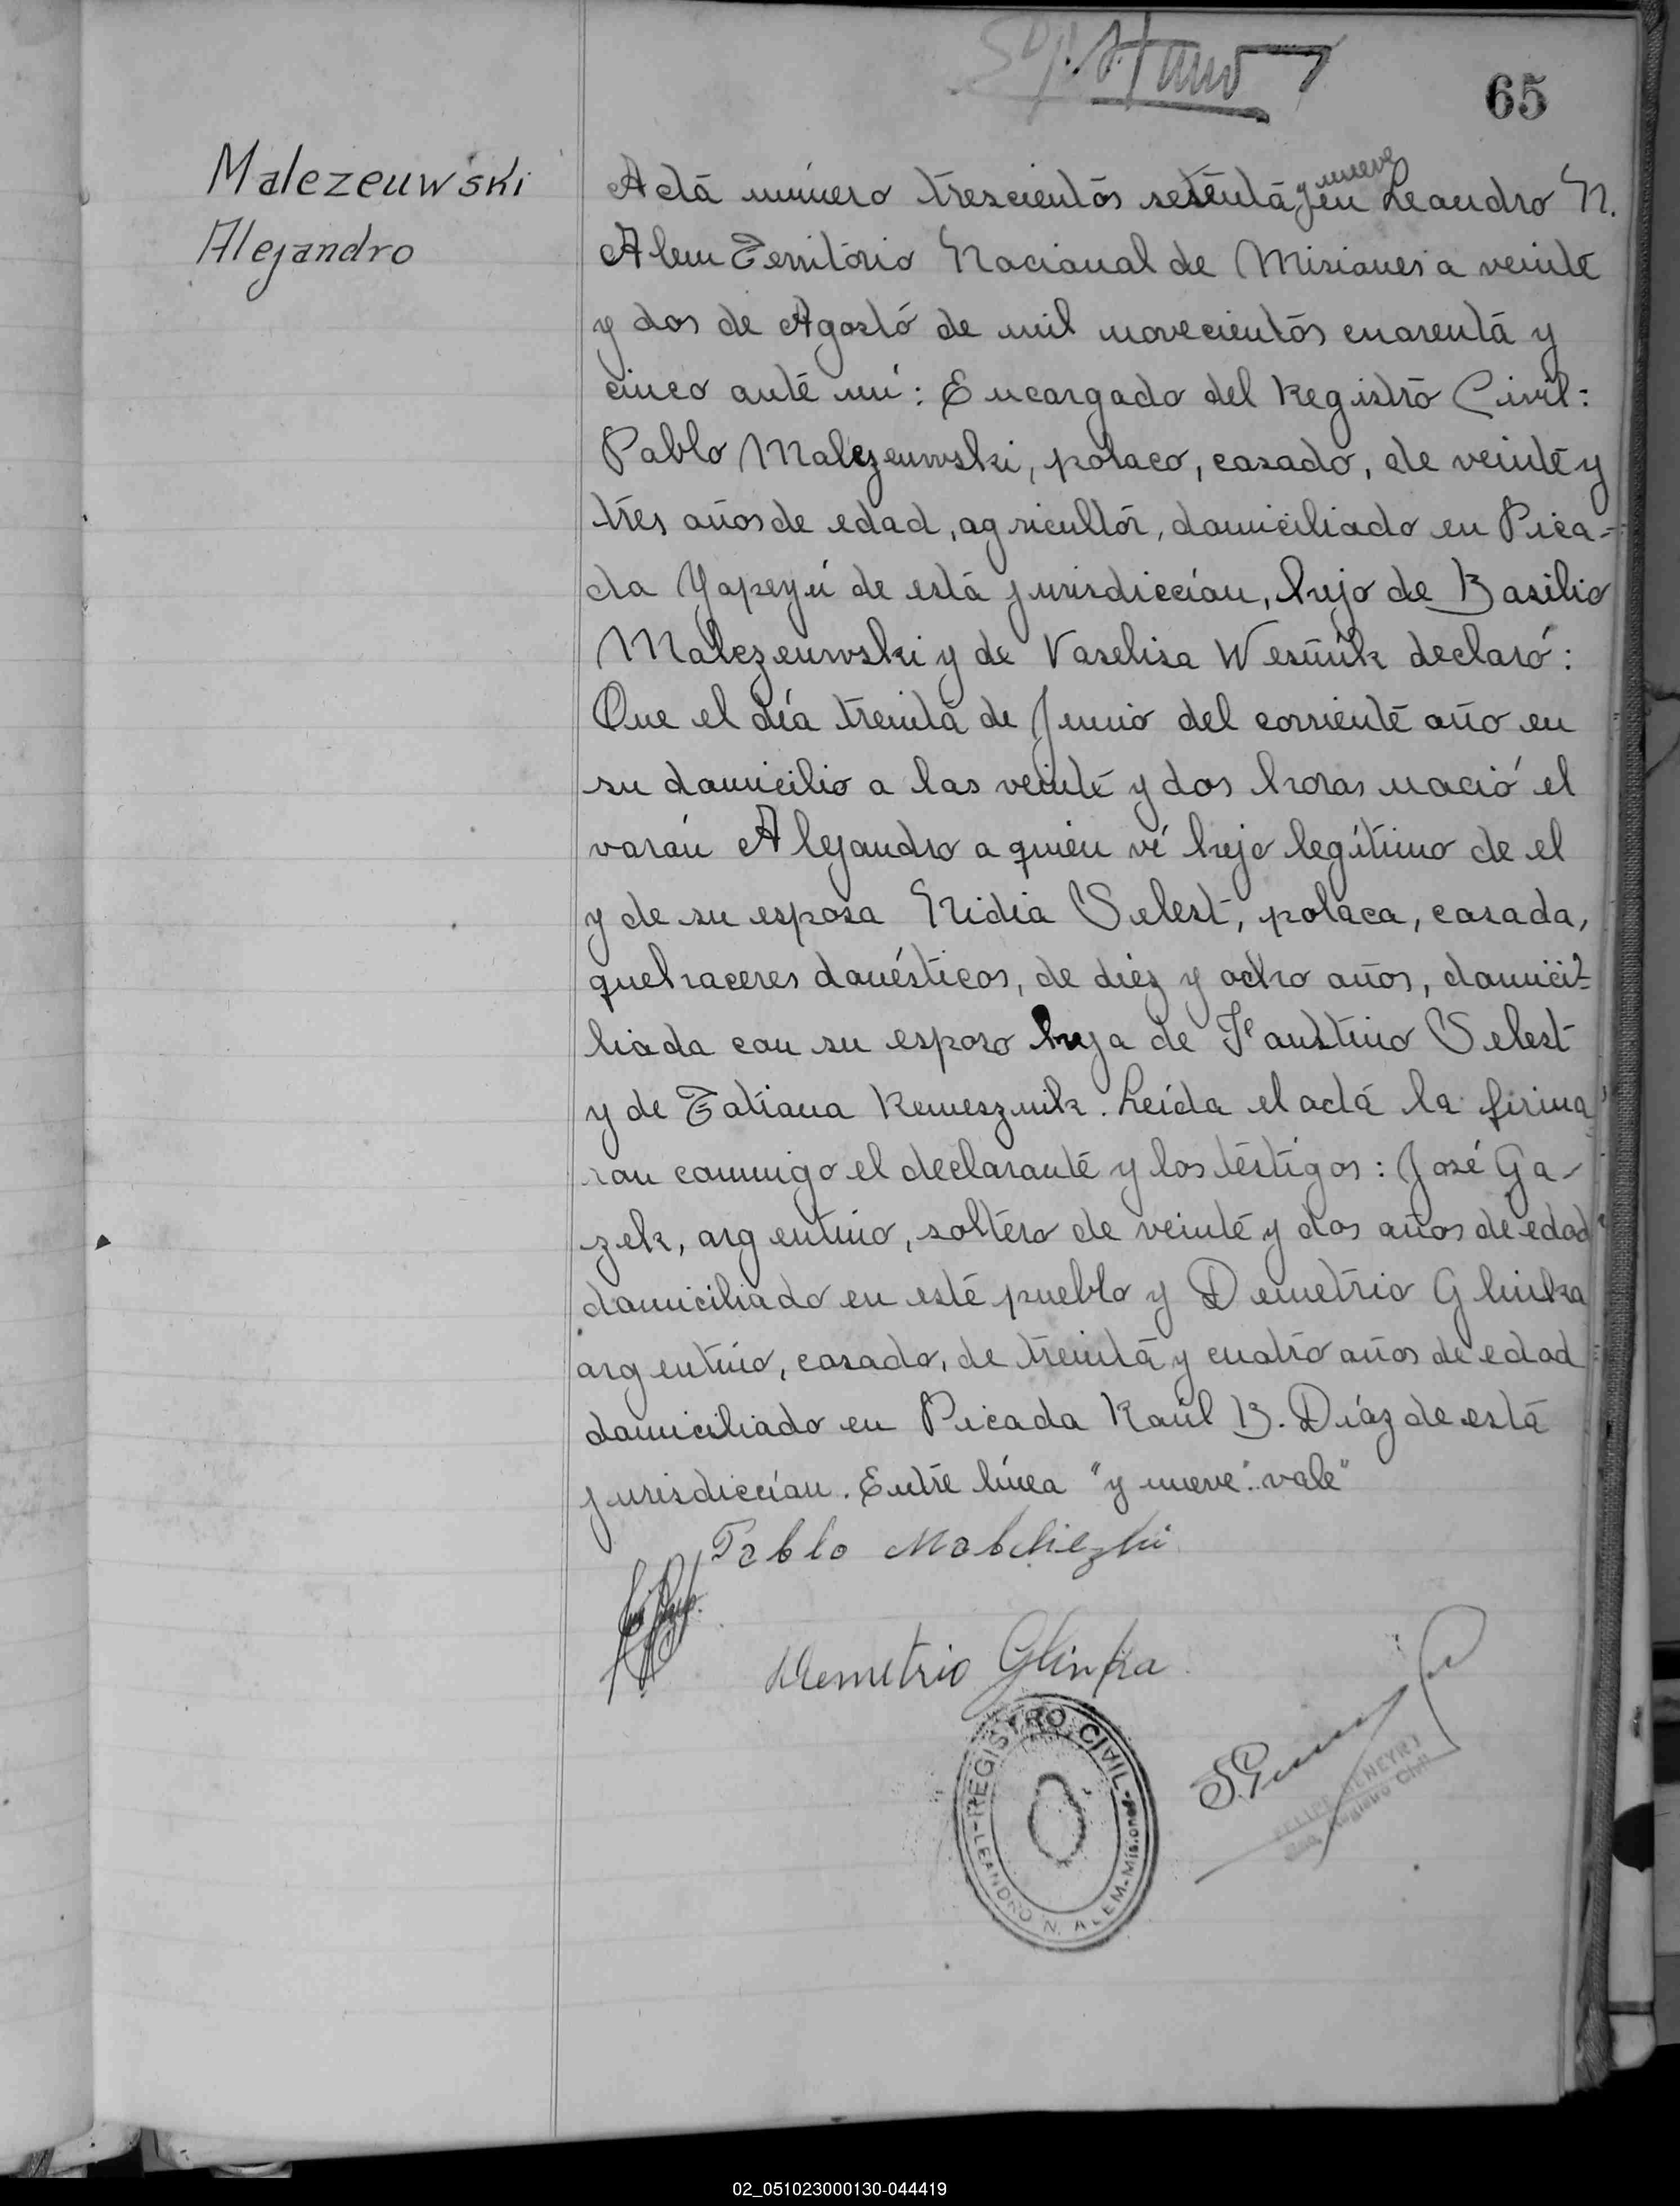 65
Malezeuwski
Alejandro
Acta número trescientos setenta y nueve en Leandro N.
Alem Territorio Nacional de Misiones a veinte
y dos de Agosto de mil novecientos cuarenta y
cinco ante mí: Encargado del Registro Civil:
Pablo Malezeuwski, polaco, casado, de veinte y
tres años de edad, agricultor, domiciliado en Pica-
da Yapeyú de esta jurisdicción, hijo de Basilio
Malezeuwski y de Vaselisa Wesñik declaró:
Que el día treinta de Junio del corriente año en
su domicilio a las veinte y dos horas nació el
varón Alejandro a quien ví hijo legítimo de el
y de su esposa Nidia Selest, polaca, casada,
quehaceres domésticos, de diéz y ocho años, domici-
liada con su esposo hija de Faustino Selest
y de Tatiana Kemesznik. Leída el acta la firma
ron conmigo el declarante y los testigos: José Ga-
zek, argentino, soltero de veinte y dos años de edad
domiciliado en este pueblo y Demetrio Glinka
argentino, casado, de treinta y cuatro años de edad
domiciliado en Picada Raúl B. Díaz de esta
jurisdicción. Entre línea "y nueve" vale"
Pablo Malchiezki
Demetrio Glinka
REGISTRO CIVIL
LEANDRO N. ALEM-Misiones
FELIPE GENEYRI
Enc. Registro Civil
02_051023000130-044419